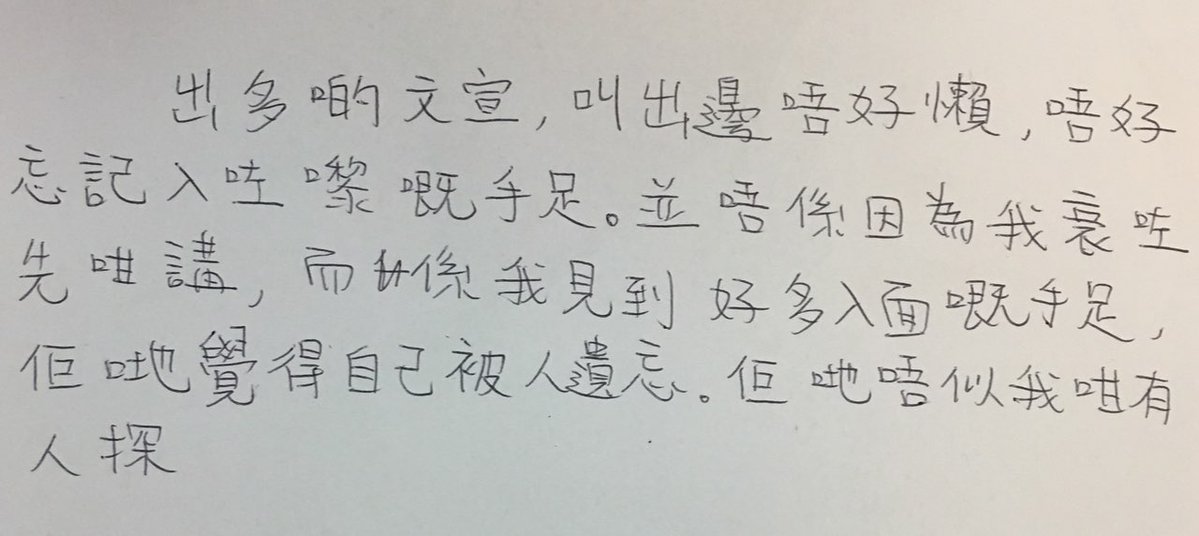 出多啲文宣,叫出邊唔好懶,唔好
忘記入咗嚟嘅手足。並唔係因為我衰咗
先咁講,而係我見到好多入面嘅手足,
佢哋覺得自己被人遺忘。佢哋唔似我咁有
人探